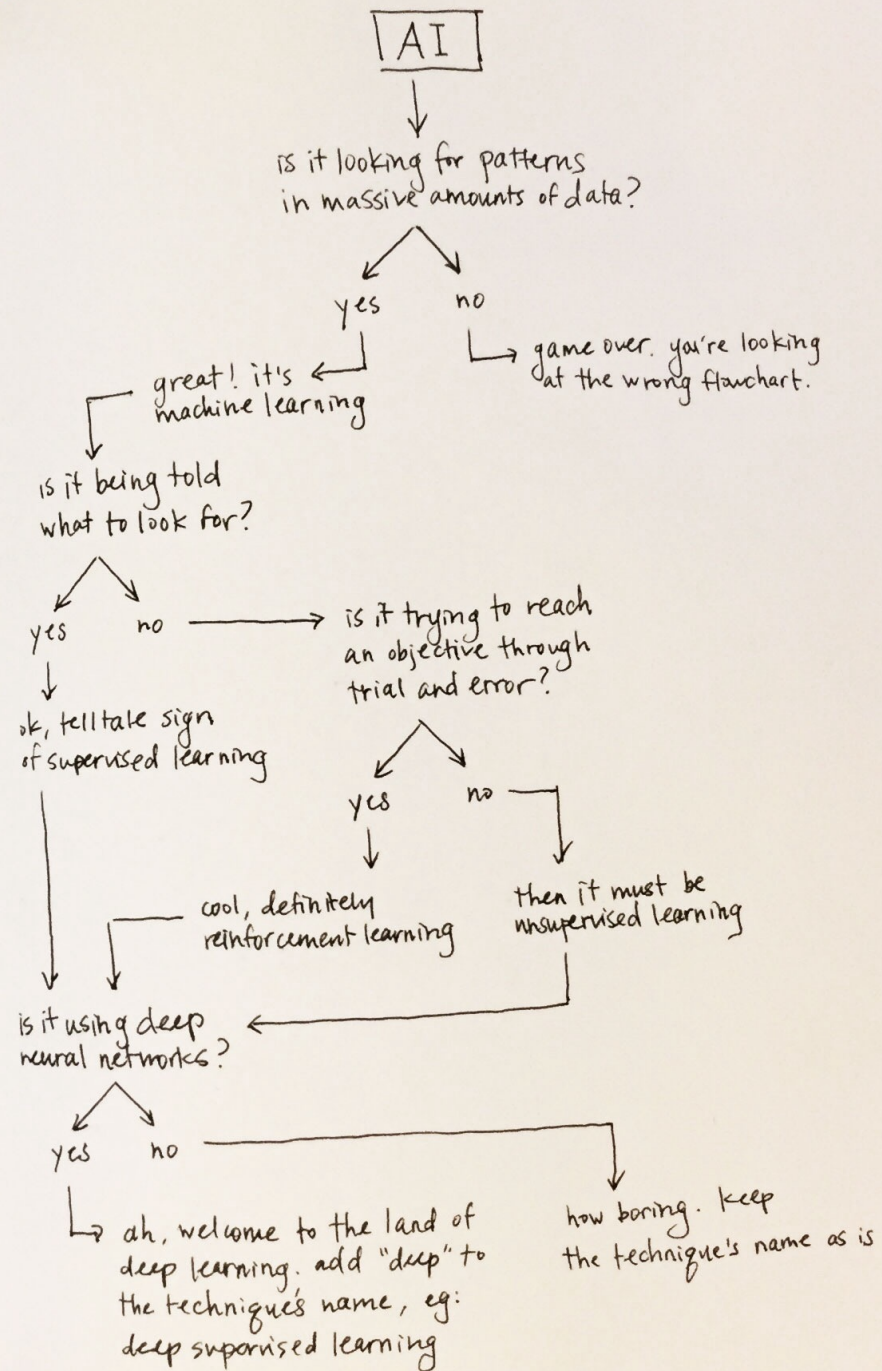 AI
is it looking for patterns
in massive amounts of data?
yes
no
great! it's
machine learning
game over. you're looking
at the wrong flowchart.
is it being told
what to look for?
yes
no
is it trying to reach
an objective through
trial and error?
ok, telltale sign
of supervised learning
yes
no
cool, definitely
reinforcement learning
then it must be
unsupervised learning
is it using deep
neural networks?
yes
no
ah, welcome to the land of
deep learning. add "deep" to
the technique's name, eg:
deep supervised learning
how boring. keep
the technique's name as is